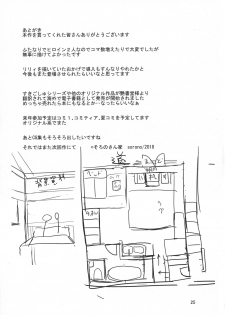 あとがき
本作を買ってくれた皆さんありがとうございます
ふたなりでヒロイン2人なのでコマ数増えたりで大変でしたが
無事に描けてよかったです
リリィ描いていたおかげで導入もすんなりやれたかと
今後もまた登場させられたらいいなと思ってます
すきごしゅシリーズや他のオリジナル作品が熱書堂様より
翻訳されて海外で電子書籍として発売が開始されました
めっちゃ売れたら本にもなるとか…なったらいいなぁ
来年参加予定はコミ1、コミティア、夏コミを予定してます
オリジナル系でまた
あとCG集もそろそろ出したいですね
それではまた次回作にて
そろのさん家 sorono/2018
道
ベッド
背景資料
25